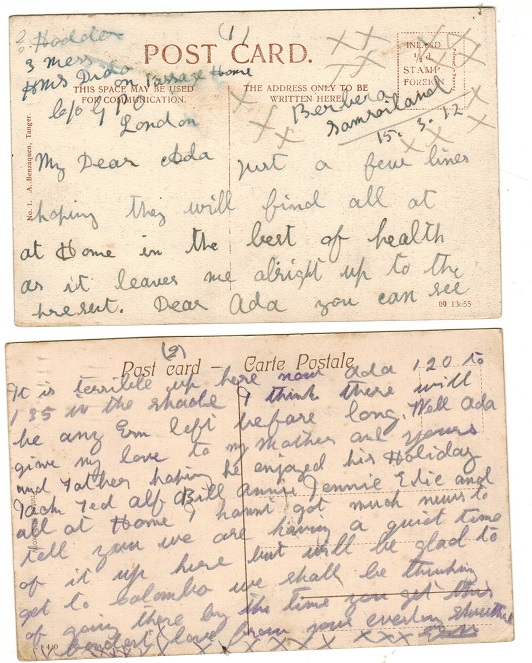 (1)
Hodder
3 Mess
HMS Dido on Passage Home
c/o G.P.O
London
POST CARD.
THIS SPACE MAY BE USED
FOR COMMUNICATION.
THE ADDRESS ONLY TO BE
WRITTEN HERE
INLAND
½d
STAMP
FOREIGN
Berbera
Samailand
15. 3. 12
No. 1. A. Benzaquen, Tanger.
My Dear Ada Just a few lines
hoping they will find all at
at Home in the best of health
as it leaves me alright up to the
present. Dear Ada you can see
09 13-55
(2)
Post card — Carte Postale
It is terrible up here now Ada 120 to
125 in the shade I think there will
be any Em left before long. Well Ada
give my love to my Mother and yours
and Father hoping he enjoyed his Holiday
Jack Ted Alf Bill Annie Jennie Elie and
all at Home I havnt got much news to
tell you we are having a quiet time
of it up here but will be glad to
get to Colombo we shall be thinking
of going there by the time you get this
fondest love from your everlov